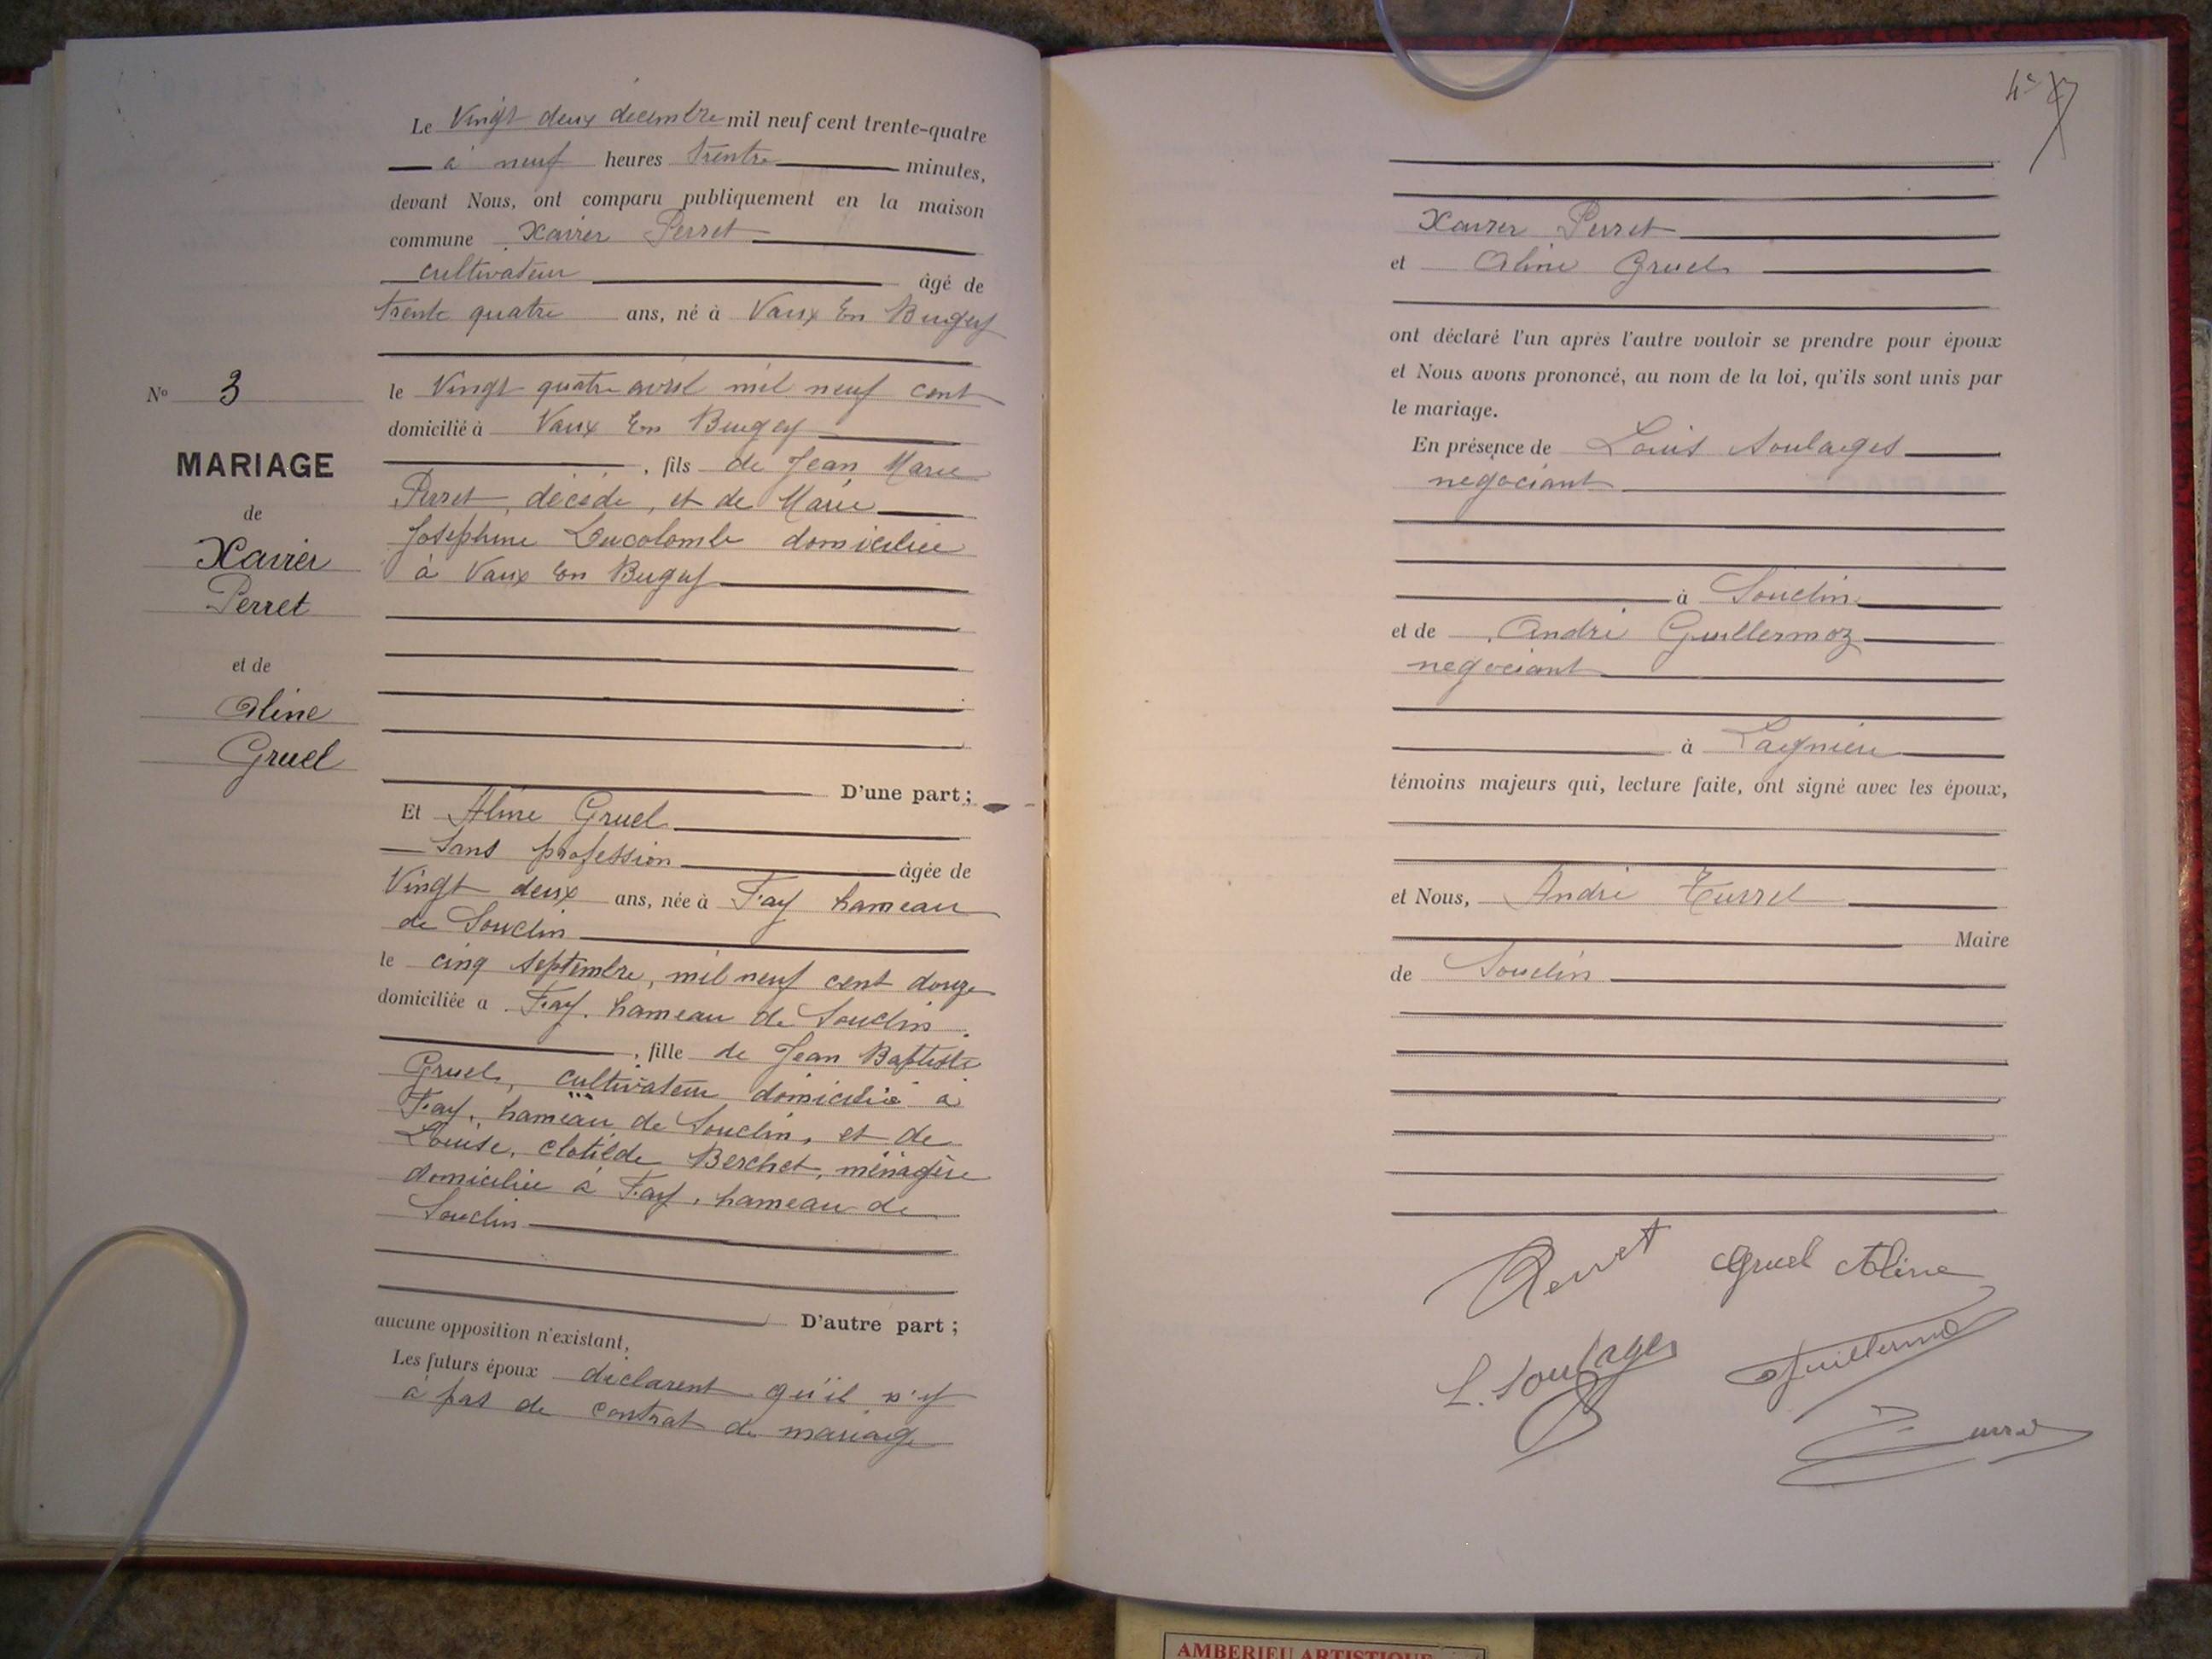 Le Vingt deux décembre mil neuf cent trente-quatre
à neuf heures trente minutes,
devant Nous, ont comparu publiquement en la maison
commune Xavier Perret
cultivateur âgé de
trente quatre ans, né à Vaux En Bugey
le Vingt quatre avril mil neuf cent
domicilié à Vaux En Bugey
, fils de Jean Marie
Perret, décédé, et de Marie
Joséphine Ducolomb domiciliée
à Vaux En Bugey
D'une part ;
Et Aline Gruel
Sans profession âgée de
Vingt deux ans, née à Fay hameau
de Souclin
le cinq septembre, mil neuf cent douze
domiciliée a Fay, hameau de Souclin
, fille de Jean Baptiste
Gruel, cultivateur domicilié à
Fay, hameau de Souclin, et de
Louise, Clotilde Berchet, ménagère
domiciliée à Fay, hameau de
Souclin
D'autre part ;
aucune opposition n'existant,
Les futurs époux déclarent qu'il n'y
a pas de contrat de mariage
No 3
MARIAGE
de
Xavier
Perret
et de
Aline
Gruel
Xavier Perret
et Aline Gruel
ont déclaré l'un après l'autre vouloir se prendre pour époux
et Nous avons prononcé, au nom de la loi, qu'ils sont unis par
le mariage.
En présence de Louis Soulages
négociant
à Souclin
et de André Guillermoz
négociant
à Lagnieu
témoins majeurs qui, lecture faite, ont signé avec les époux,
et Nous, André Turrel
Maire
de Souclin
Perret Gruel Aline
L. Soulages Guillermoz
Turrel
AMBERIEU ARTISTIQUE